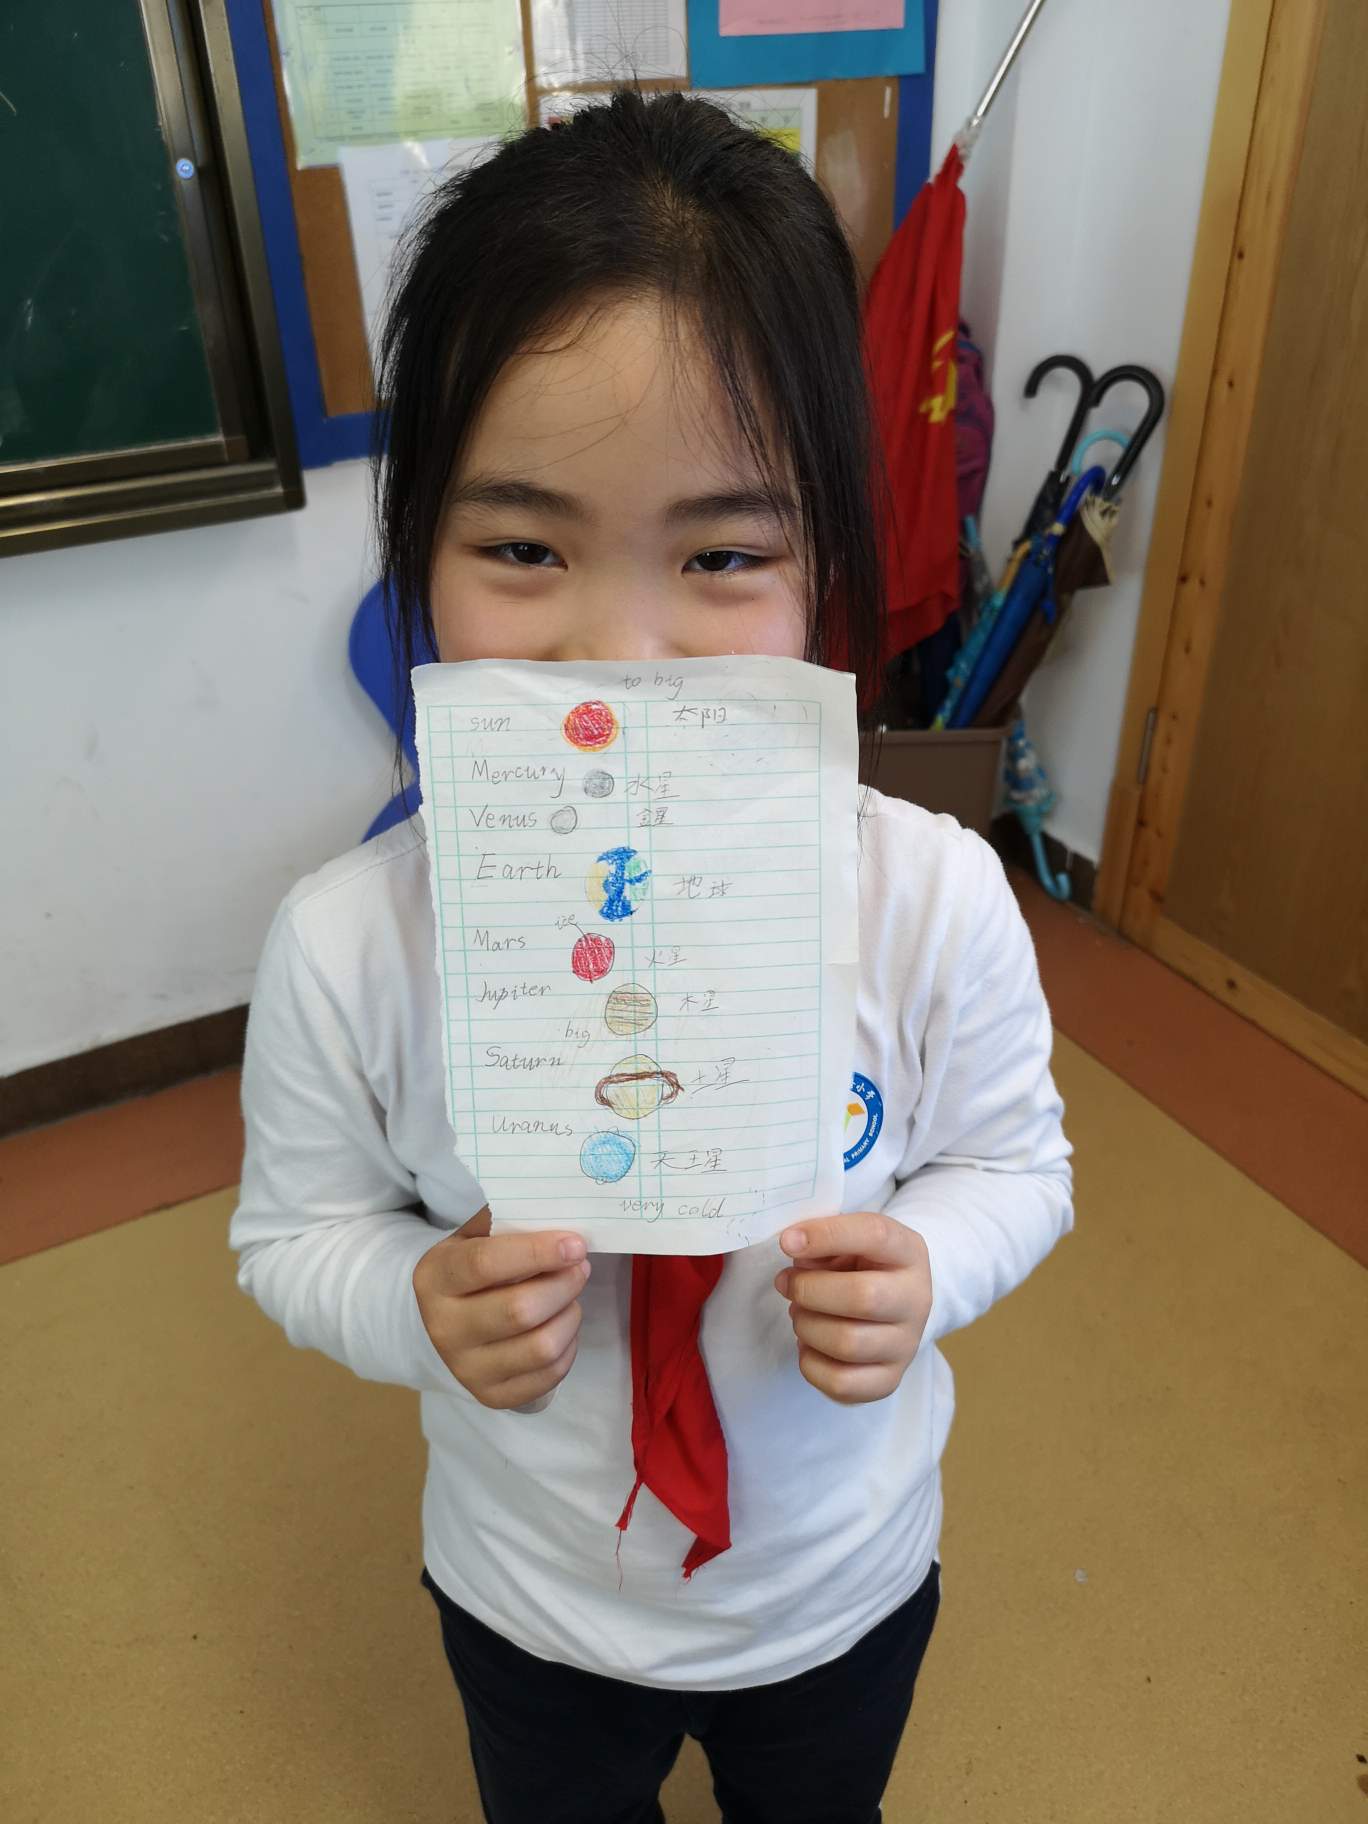 to big
sun 太阳
Mercury 水星
Venus 金星
Earth 地球
ice
Mars 火星
Jupiter 木星
big
Saturn 土星
Uranus 天王星
very cold
小学
PRIMARY SCHOOL